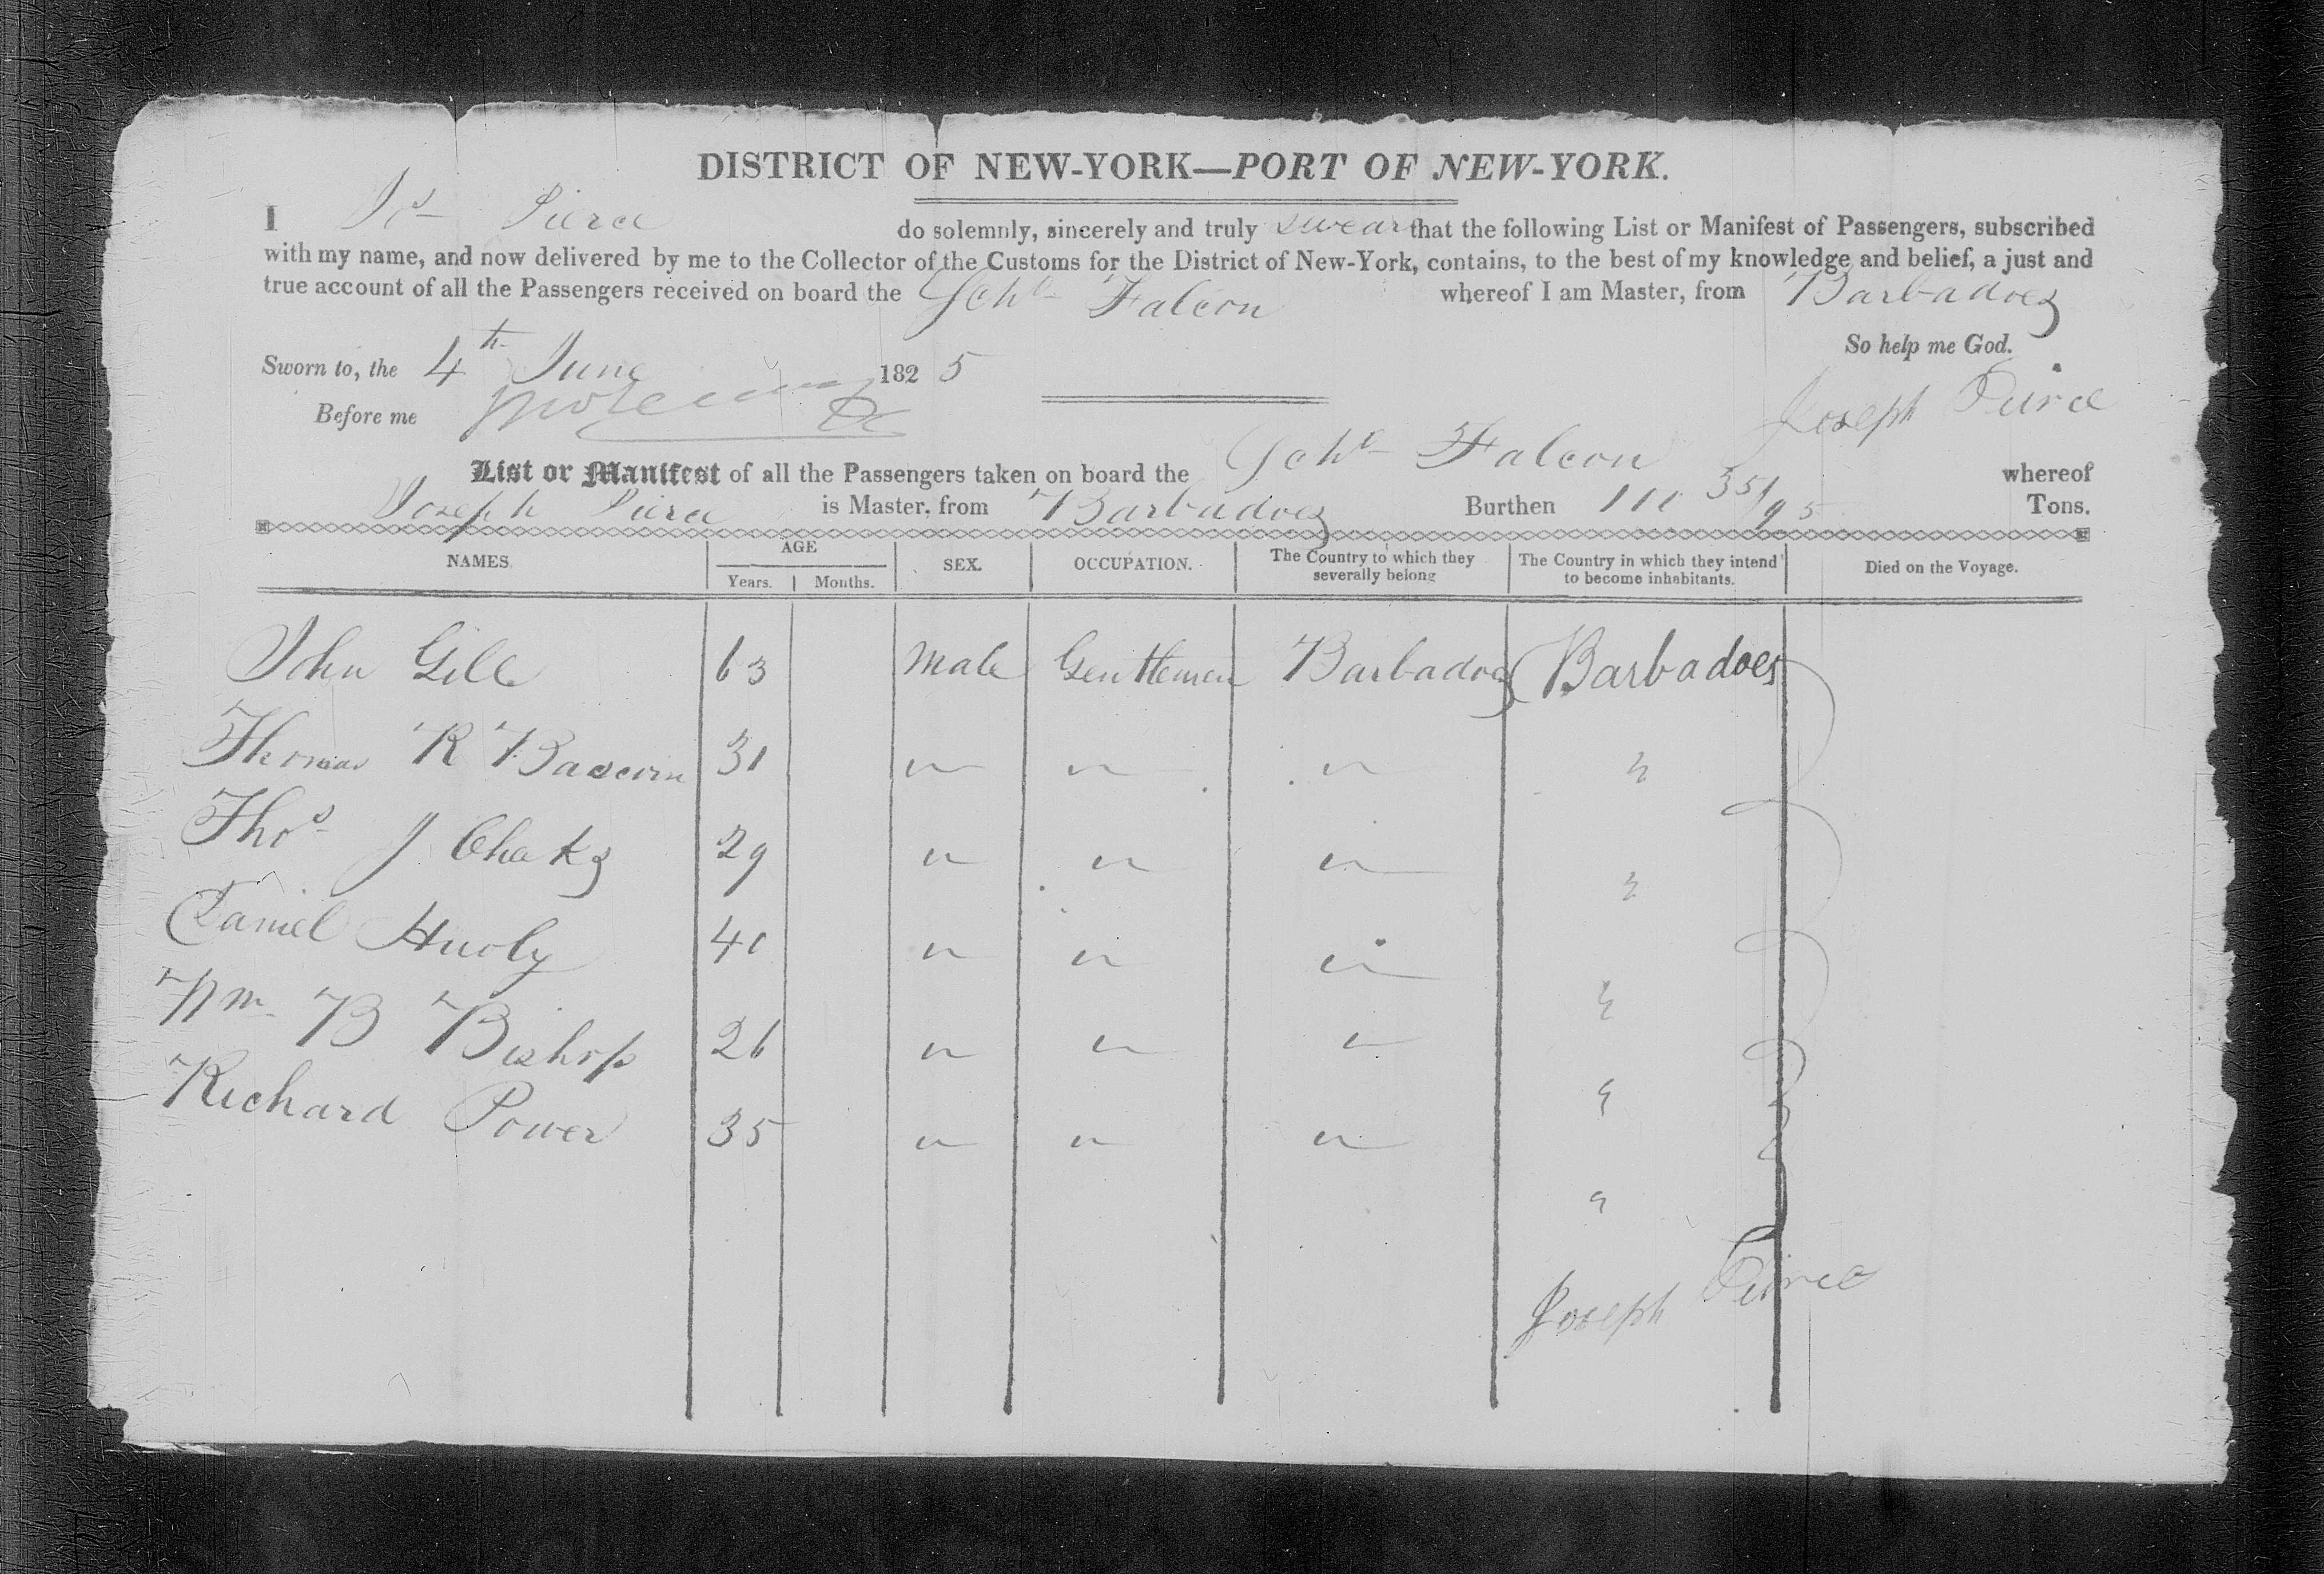 DISTRICT OF NEW-YORK—PORT OF NEW-YORK.
I Jos Pierce do solemnly, sincerely and truly swear that the following List or Manifest of Passengers, subscribed
with my name, and now delivered by me to the Collector of the Customs for the District of New-York, contains, to the best of my knowledge and belief, a just and
true account of all the Passengers received on board the Schr Falcon whereof I am Master, from Barbadoes
So help me God.
Sworn to, the 4th June 1825
Before me
Joseph Peirce
List or Manifest of all the Passengers taken on board the Schr Falcon whereof
Joseph Pierce is Master, from Barbadoes Burthen 111 35/95 Tons.
NAMES. AGE Years. Months. SEX. OCCUPATION. The Country to which they severally belong The Country in which they intend to become inhabitants. Died on the Voyage.
John Gill 63 Male Gentlemen Barbadoes Barbadoes
Thomas R Bascom 31 " " " "
Thos J 29 " " " "
Daniel 40 " " " "
Wm B Bishop 26 " " " "
Richard Power 35 " " " "
Joseph Peirce